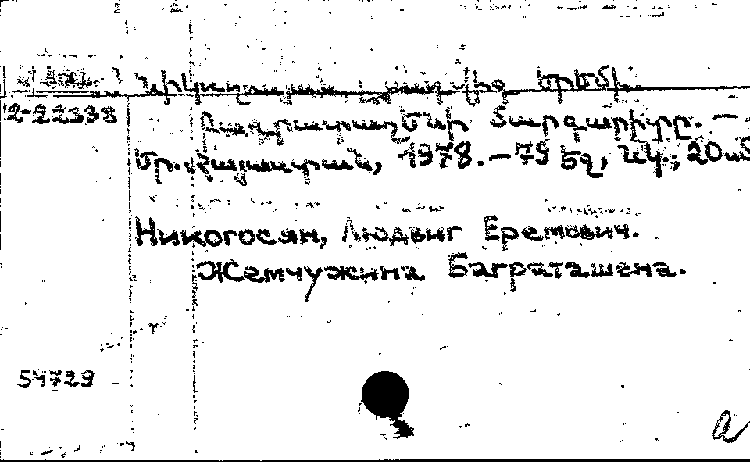 Նիկողոսյան Լյուդվիգ Երեմի
2-22338
Բագրատաշենի մարգարիտը. —
Եր., Հայաստան, 1978. — 79 էջ, նկ.; 20սմ
Никогосян, Людвиг Еремович.
Жемчужина Баграташена.
54729
а